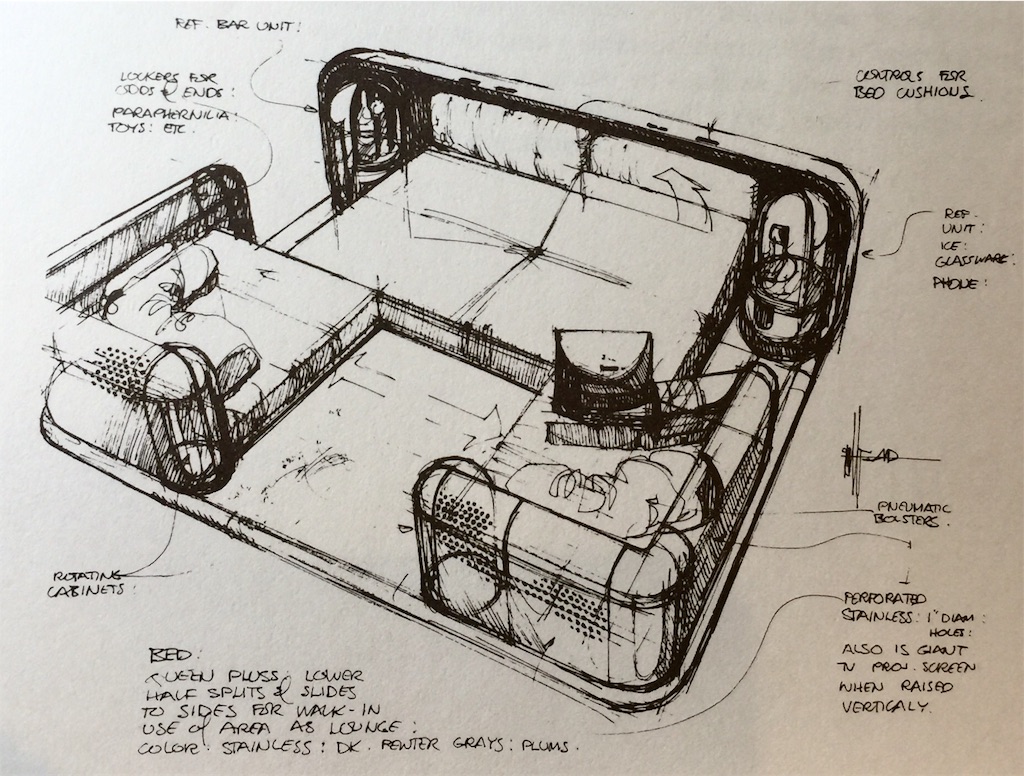 REF. BAR UNIT:
LOCKERS FOR
ODDS & ENDS:
PARAPHERNILIA:
TOYS: ETC.
CONTROLS FOR
BED CUSHIONS.
REF.
UNIT:
ICE:
GLASSWARE:
PHONE:
HEAD
PNEUMATIC
BOLSTERS.
ROTATING
CABINETS:
PERFORATED
STAINLESS: 1" DIAM:
HOLES:
ALSO IS GIANT
TV PROJ. SCREEN
WHEN RAISED
VERTICALY.
BED:
QUEEN PLUSS; LOWER
HALF SPLITS & SLIDES
TO SIDES FOR WALK-IN
USE of AREA AS LOUNGE:
COLOR: STAINLESS: DK. PEWTER GRAYS: PLUMS.